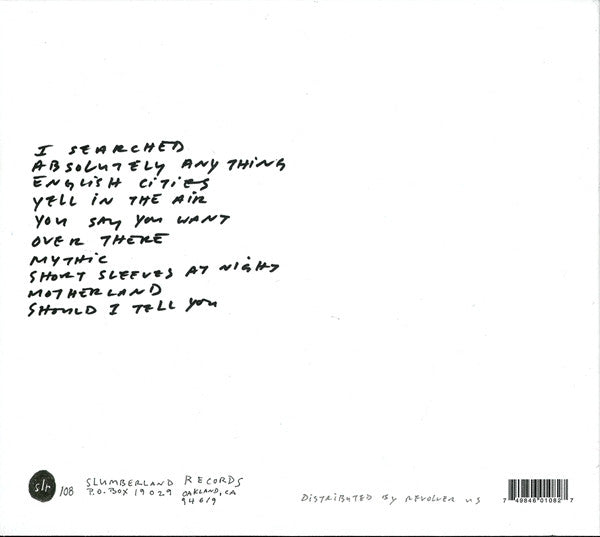 I SEARCHED
ABSOLUTELY ANYTHING
ENGLISH CITIES
YELL IN THE AIR
YOU SAY YOU WANT
OVER THERE
MYTHIC
SHORT SLEEVES AT NIGHT
MOTHERLAND
SHOULD I TELL YOU
slr /108
SLUMBERLAND RECORDS
P.O. BOX 19029 OAKLAND, CA
94619
DISTRIBUTED BY REVOLVER US
7 49846 01082 7